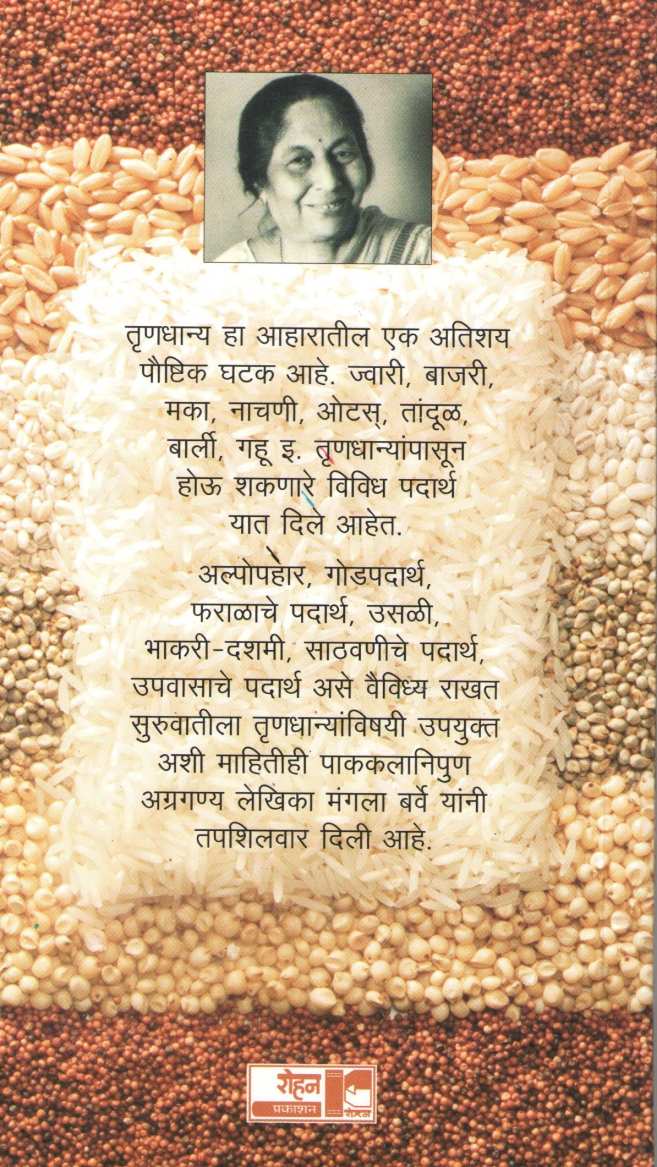 तृणधान्य हा आहारातील एक अतिशय
पौष्टिक घटक आहे. ज्वारी, बाजरी,
मका, नाचणी, ओटस्, तांदूळ,
बार्ली, गहू इ. तृणधान्यांपासून
होऊ शकणारे विविध पदार्थ
यात दिले आहेत.
अल्पोपहार, गोडपदार्थ,
फराळाचे पदार्थ, उसळी,
भाकरी-दशमी, साठवणीचे पदार्थ,
उपवासाचे पदार्थ असे वैविध्य राखत
सुरुवातीला तृणधान्यांविषयी उपयुक्त
अशी माहितीही पाककलानिपुण
अग्रगण्य लेखिका मंगला बर्वे यांनी
तपशिलवार दिली आहे.
रोहन
प्रकाशन